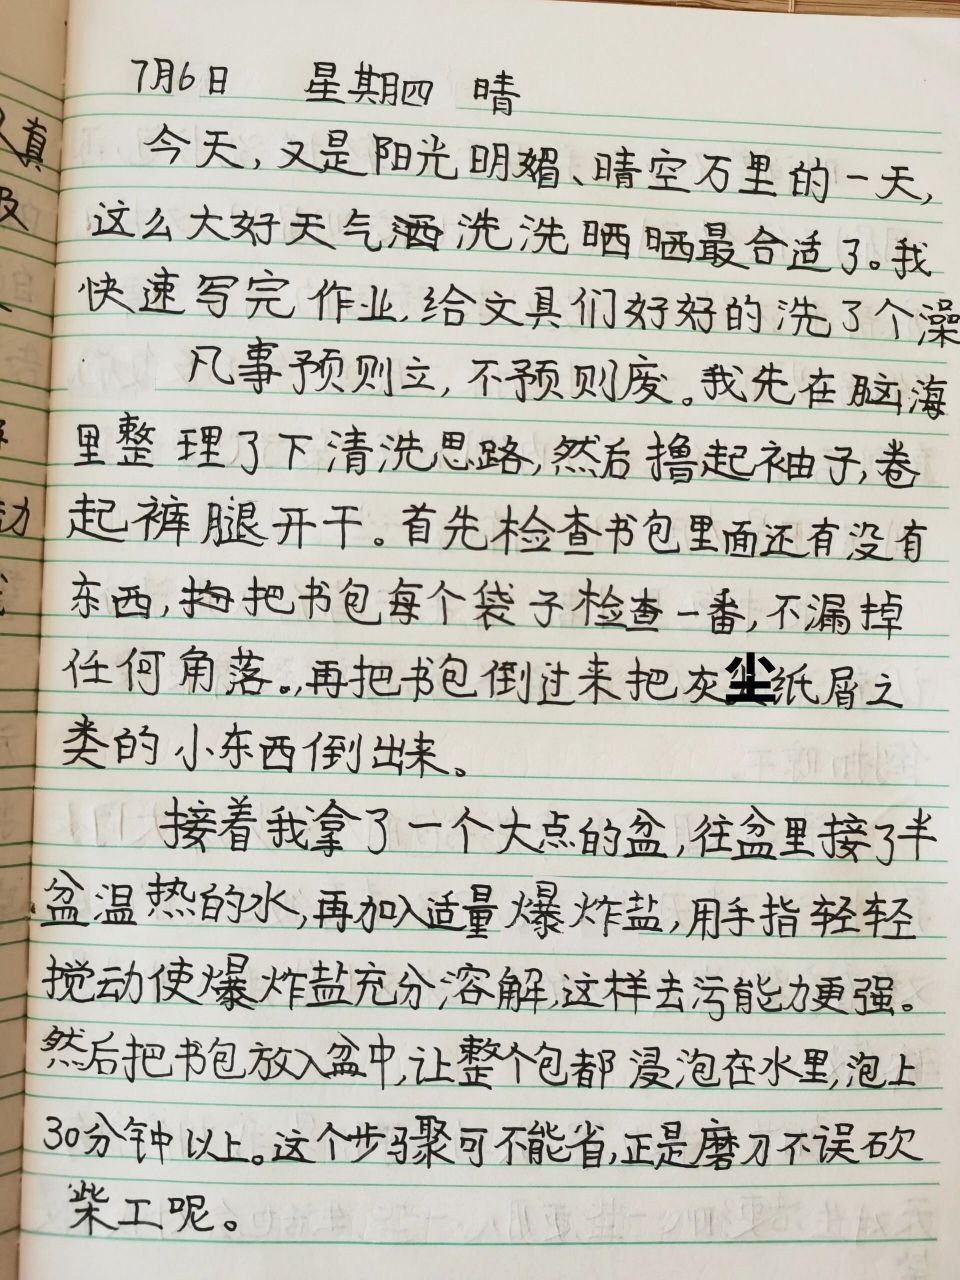 7月6日 星期四 晴
今天，又是阳光明媚、晴空万里的一天，
这么大好天气洒洗洗晒晒最合适了。我
快速写完作业，给文具们好好的洗了个澡
凡事预则立，不预则废。我先在脑海
里整理了下清洗思路，然后撸起袖子，卷
起裤腿开干。首先检查书包里面还有没有
东西，把书包每个袋子检查一番，不漏掉
任何角落。，再把书包倒过来把灰尘纸屑之
类的小东西倒出来。
接着我拿了一个大点的盆，往盆里接了半
盆温热的水，再加入适量爆炸盐，用手指轻轻
搅动使爆炸盐充分溶解，这样去污能力更强。
然后把书包放入盆中，让整个包都浸泡在水里，泡上
30分钟以上。这个步骤可不能省，正是磨刀不误砍
柴工呢。